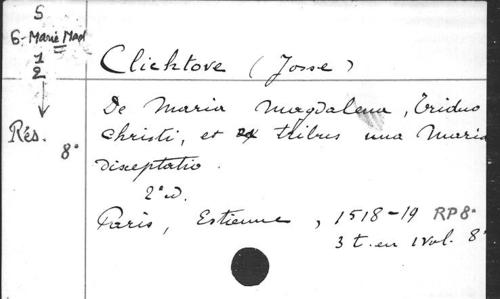 S
6-Marie Mad
1
2
Rés.
8°
Clichtove (Josse)
De Maria Magdalena, triduo
christi, et ex tribus una Maria
disceptatio.
2° éd.
Paris, Estienne, 1518-19 RP8°
3 t. en 1 vol. 8°